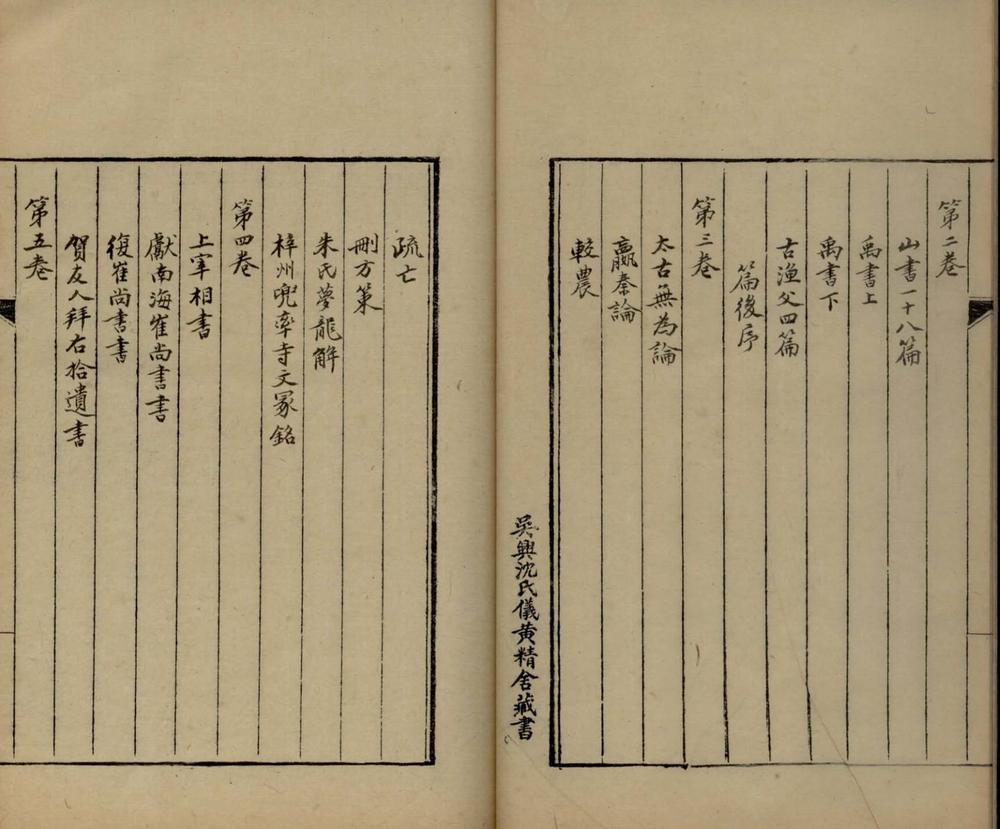 第二卷
山書一十八篇
禹書上
禹書下
古漁父四篇
篇後序
第三卷
太古無為論
嬴秦論
較農
吳興沈氏儀黃精舍藏書
疏亡
刪方策
朱氏夢龍解
梓州兜率寺文冢銘
第四卷
上宰相書
獻南海崔尚書書
復崔尚書書
賀友人拜右拾遺書
第五卷